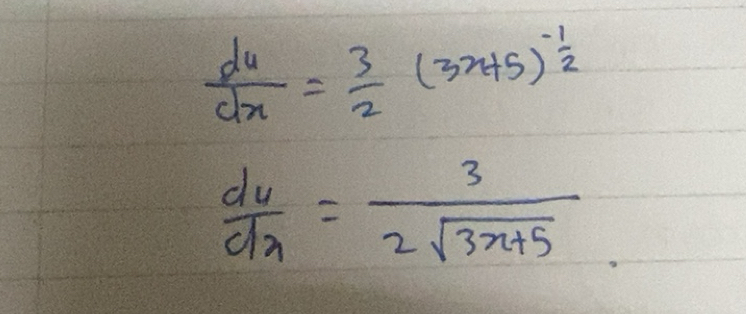 du/dx = 3/2 (3x+5)^-1/2
du/dx = 3/(2√(3x+5)).